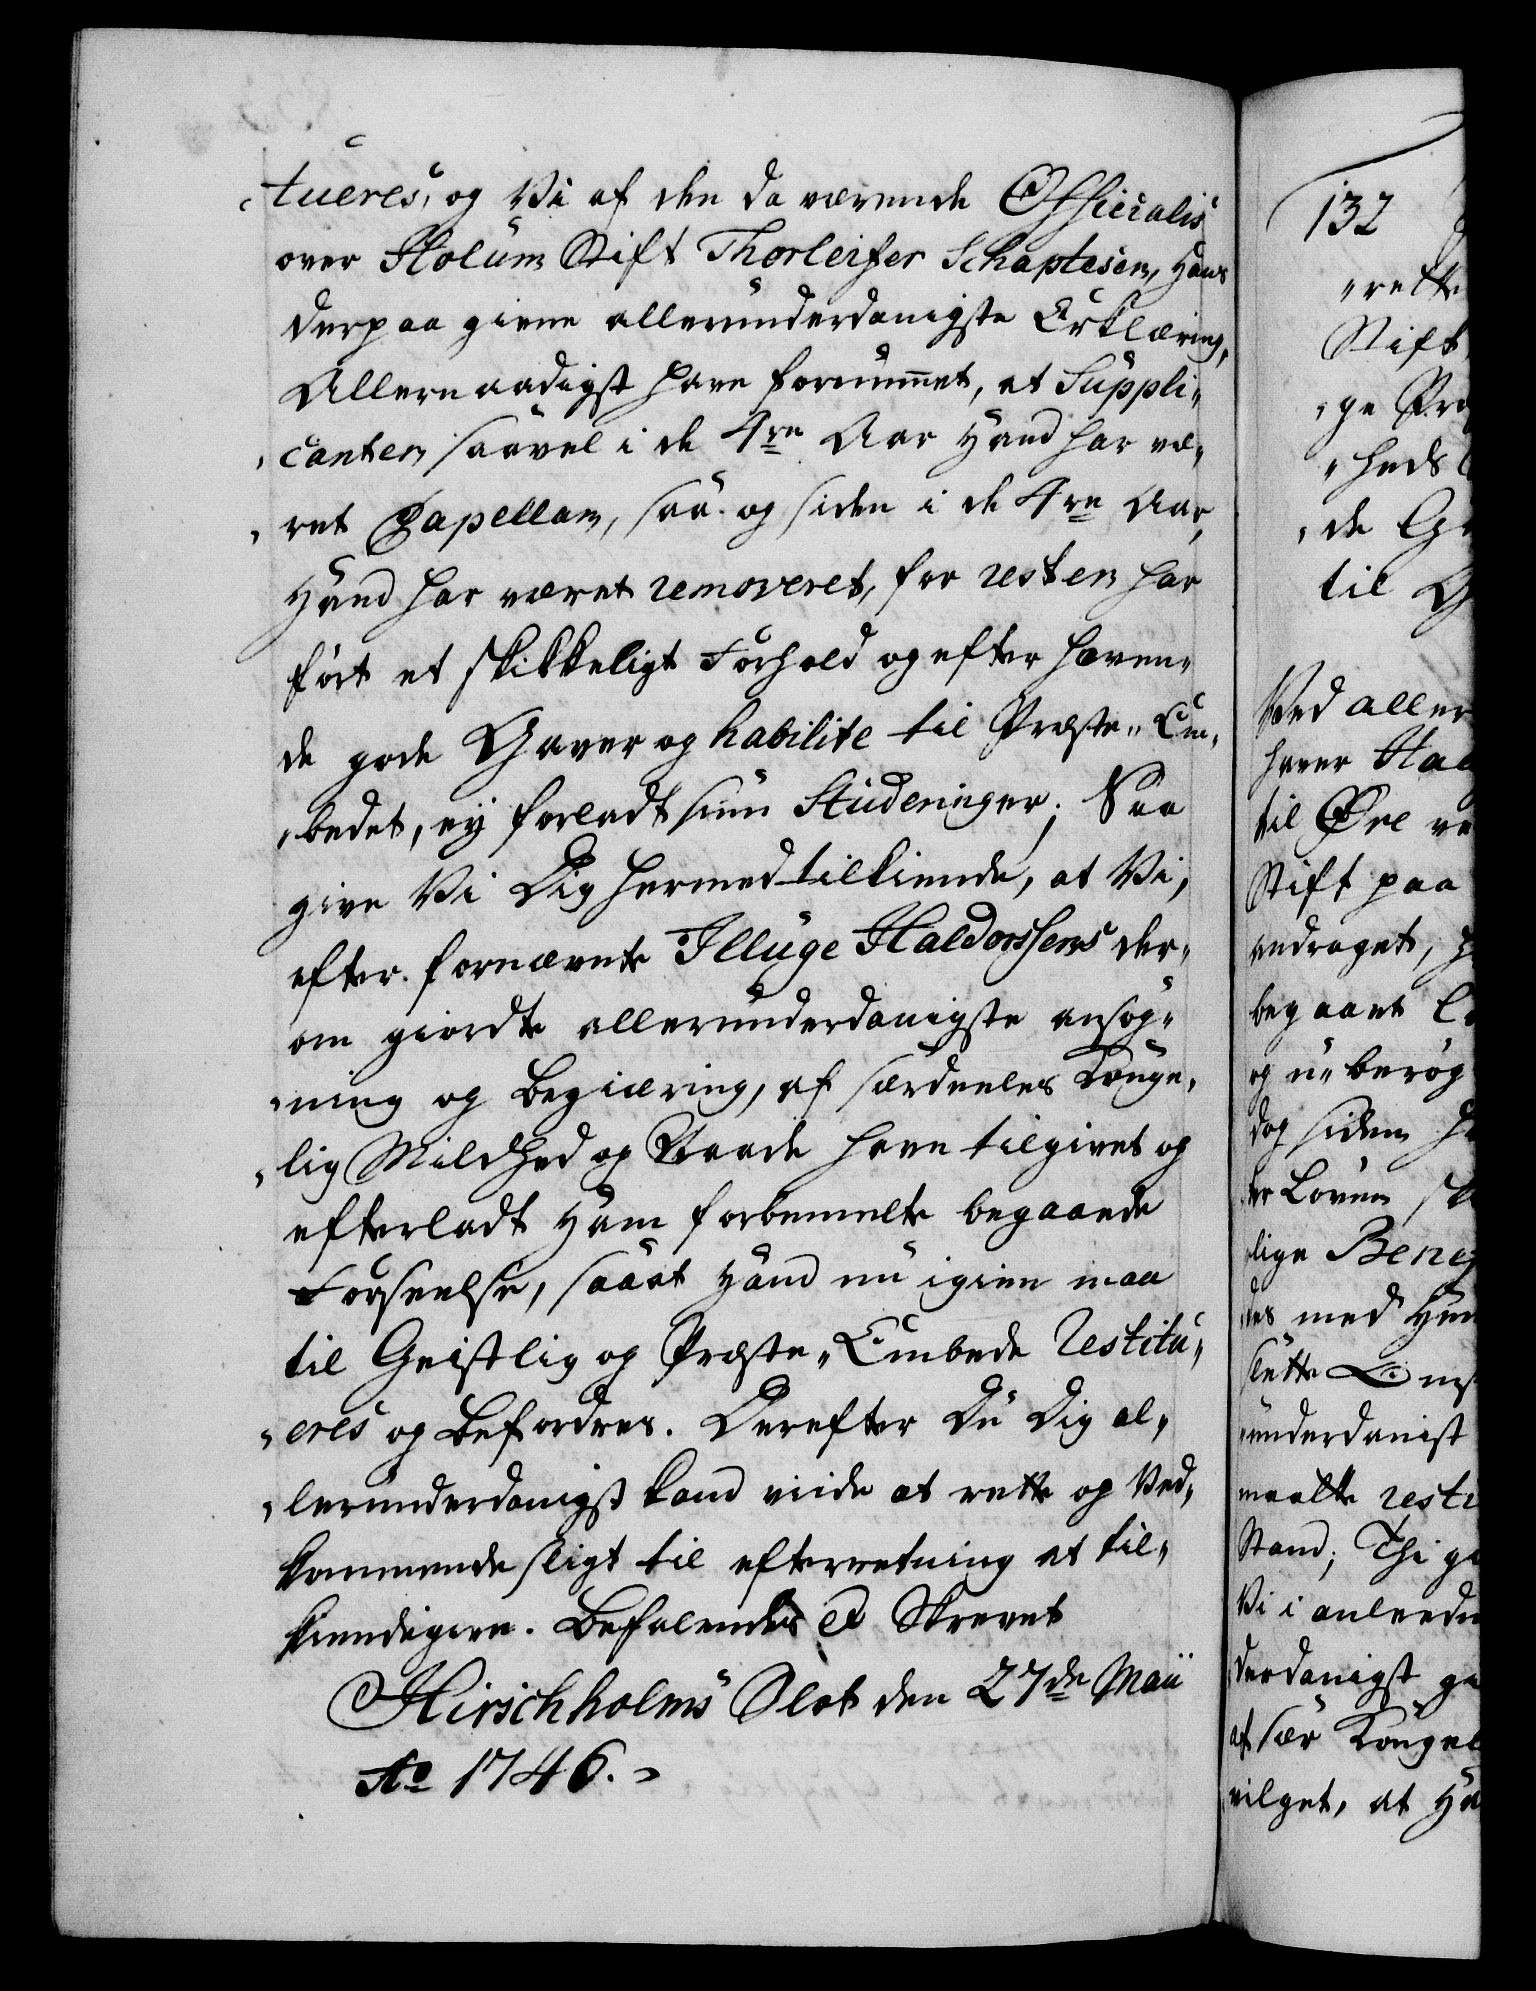 tueres, og Vi af den da værende Officialis
over Holum Stift Thorleifer Schaptesen, Hans
derpaa givne allerunderdanigste Erklæring,
Allernaadigst have fornummet, at Suppli„
„canten saavel i de 4re Aar Hand har væ„
„ret Capellan, saa og siden i de 4re Aar,
Hand har været removeret, for resten har
ført et skikkeligt Forhold og efter haven„
de gode Gaver og habilite til Præste„Em„
„bedet, ey forladt sine Studeringer; Saa
give Vi Dig hermed tilkiende, at Vi,
efter fornævnte Illuge Haldorssens der„
om giordte allerunderdanigste ansøg„
„ning og Begiæring, af særdeeles Konge„
„lig Mildhed og Naade have tilgivet og
efterladt Ham forbemelte begaaede
Forseelse, saa at Hand nu igien maa
til Geistlig og Præste„Embede Restitu„
„eres og Befordres. Derefter Du Dig al„
„lerunderdanigst kand viide at rette og Ved„
kommende sligt til efterretning at til„
kiendegive. Befalendes &c Skrevet
Hirschholms Slot den 27de Maii
Ao 1746.
132
„rette
Stift
„ge Præ
„heds
„de
til
Ved aller
haver
til Øre
Stift paa
andraget,
begaaet
og u„berøg
dog siden
ter Loven
lige Bene
des med
slette
underdanist
maatte resti
Stand; Thi
Vi i anleedn
derdanigst
af sær Kongel
vilget, at